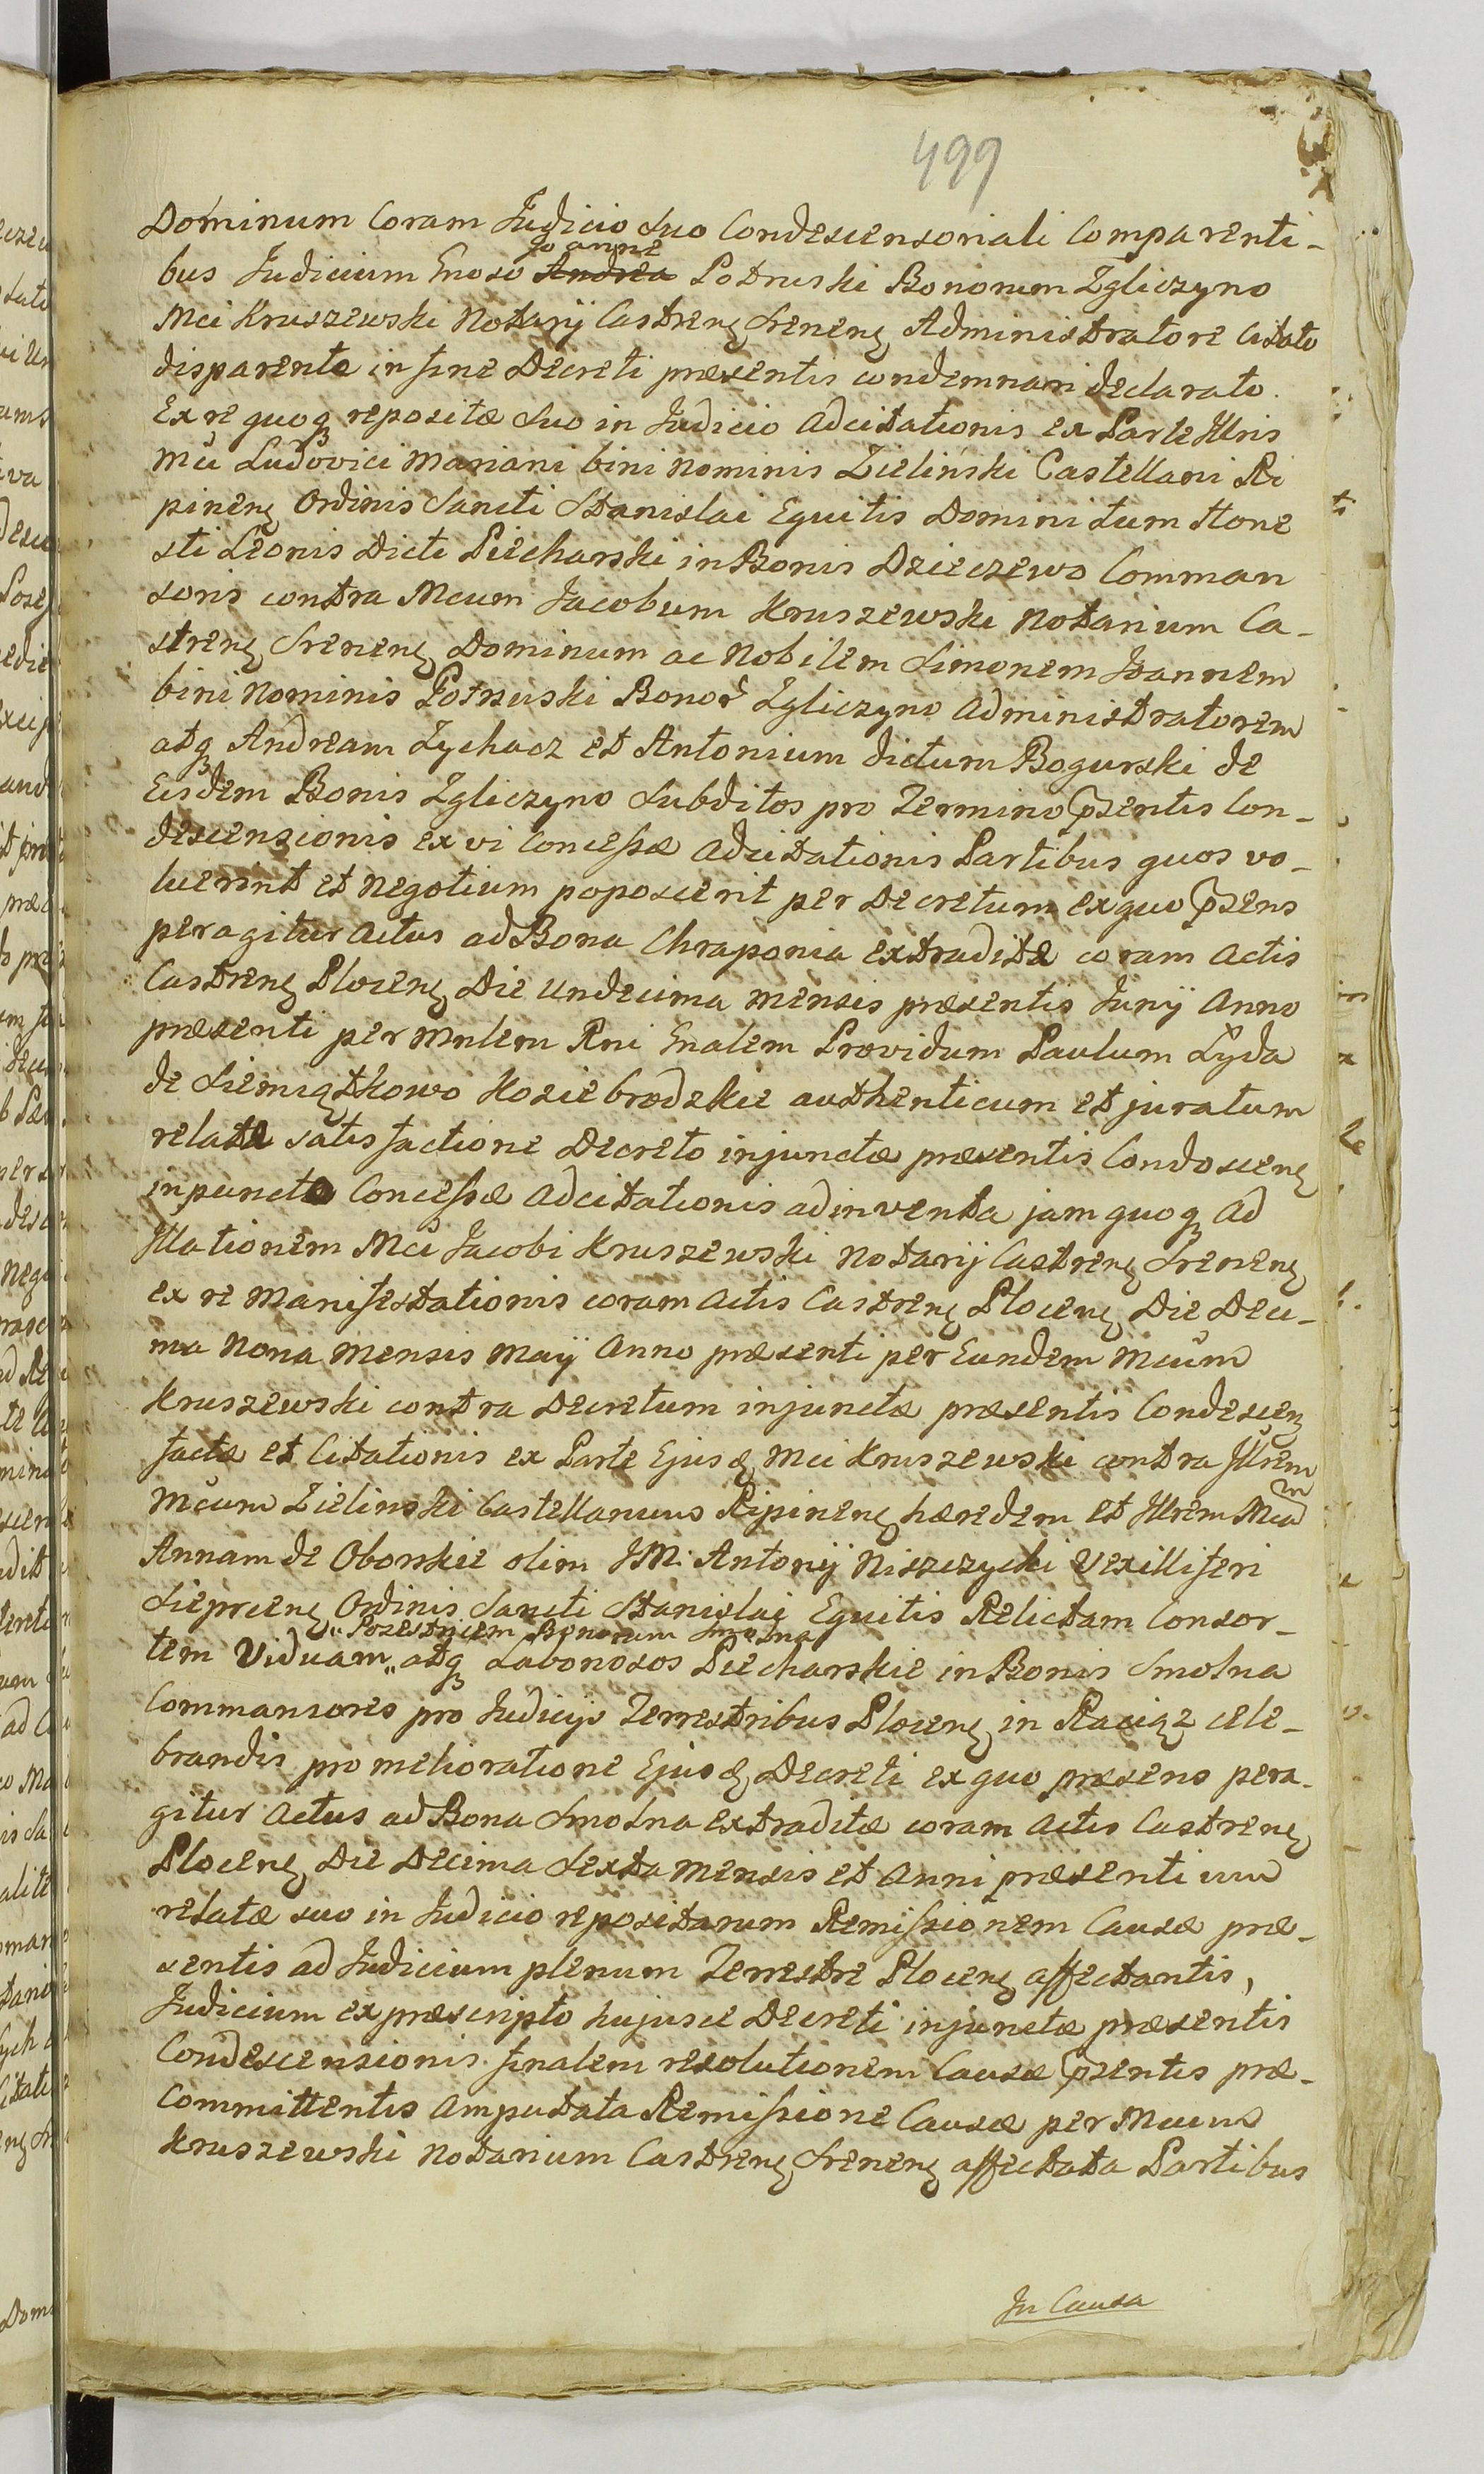 499
Dominum Coram Judicio Suo Condescensoriali Comparenti-
Joanne
bus Judicium Gnoso Andrea Potruski Bonorum Zgliczyno
Mci Kruszewski Notarij Castren. Srenen. Administratore Citato
disparente in fine Decreti præsentis condemnari declarato.
Ex re quoq. repositæ Suo in Judicio Adcitationis ex Parte Illris
Mci Ludovici Mariani bini Nominis Zieliński Castellani Ri
pinen. Ordinis Sancti Stanislai Equitis Domini tum Hone
sti Leonis Dicti Piecharski in Bonis Dzieczewo Comman
soris contra Mcum Jacobum Kruszewski Notarium Ca-
stren. Srenen. Dominum ac Nobilem Simonem Joannem
bini Nominis Potruski Bonor. Zgliczyno Administratorem
atq. Andream Zychacz et Antonium dictum Bogurski de
Eisdem Bonis Zgliczyno Subditos pro Termino psentis Con-
descensionis ex vi Concessæ Adcitationis Partibus quos vo-
luerint et Negotium poposcerit per Decretum ex quo psens
peragitur Actus ad Bona Chraponia extraditæ coram Actis
Castren. Plocen. Die Undecima mensis præsentis Junij Anno
præsenti per Mnlem Rni Gnalem Providum Paulum Łyda
de Siemiątkowo Koziebrodzkie authenticum et juratum
relatæ satisfactione Decreto injunctæ præsentis Condescen.
in puncto Concessæ Adcitationis adinventa jam quoq. Ad
Illationem Mci Jacobi Kruszewski Notarij Castren. Srenen.
ex re Manifestationis coram Actis Castren. Plocen. Die Deci-
ma Nona Mensis Maij Anno præsenti per Eundem Mcum
Kruszewski contra Decretum injunctæ præsentis Condescen.
factæ et Citationis ex Parte Ejusd. Mci Kruszewski contra Illrem
Mcum Zielinski Castellanum Ripinen. hæredem et Illrem Mcam
Annam de Oborskie olim J.M. Antonij Niszczycki Vexilliferi
Sieprcen. Ordinis Sancti Stanislai Equitis Relictam Consor-
" Possestricem Bonorum Smolna
tem Viduam " atq. Laboriosos Piecharskie in Bonis Smolna
Commansores pro Judicijs Terrestribus Plocen. in Raciąz cele-
brandis pro melioratione Ejusd. Decreti ex quo præsens pera-
gitur Actus ad Bona Smolna extraditæ coram Actis Castren.
Plocen. Die Decima Sexta Mensis et Anni præsentium
relatæ suo in Judicio repositarum Remissionem Causæ præ-
sentis ad Judicium plenum Terrestre Plocen. affectantis,
Judicium ex præscripto hujusce Decreti injunctæ præsentis
Condescensionis finalem resolutionem Causæ psentis præ-
Committentis Amputata Remissione Causæ per Mcum
Kruszewski Notarium Castren. Srenen. affectata Partibus
In Causa